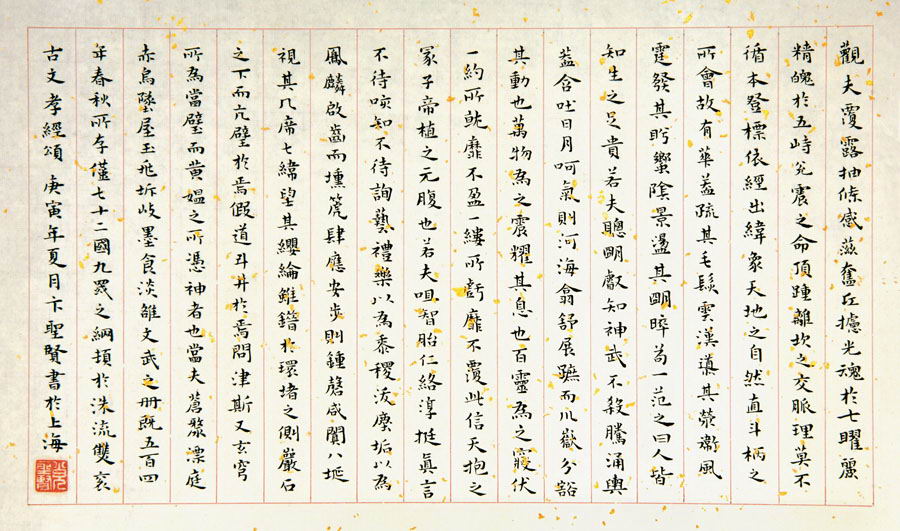 觀夫覆露抽條感蒸奮丘攄光魂於七曜麗
精魄於五峙宛震之命頂踵離坎之交脈理莫不
循本登標依經出緯象天地之自然直斗柄之
所會故有華蓋疏其毛髮雲漢導其滎衛風
霆發其肹蠁陰景盪其明晬為一范之曰人皆
知生之足貴若夫聰明叡知神武不殺騰涌輿
蓋含吐日月呵氣則河海翕舒展蹠而川嶽分豁
其動也萬物為之震耀其息也百靈為之寢伏
一約所就靡不盈一縷所虧靡不覆此信天抱之
冢子帝植之元腹也若夫咀智胎仁絡淳挺眞言
不待咳知不待詢藝禮樂以為黍稷汰麋垢以為
鳳麟啟齒而壎箎肆應安步則鍾磬咸聞八埏
視其几席七緯望其纓綸錐鍇於環堵之側巖石
之下而亢璧於焉假道斗井於焉問津斯又玄穹
所為當璧而黄媼之所憑神者也當夫蒿漦漂庭
赤烏墜屋玉兆坼歧墨食淡雒文武之冊既五百四
年春秋所存僅七十二國九罭之綱頓於洙流雙亥
古文孝經頌 庚寅年夏月卞聖賢書於上海